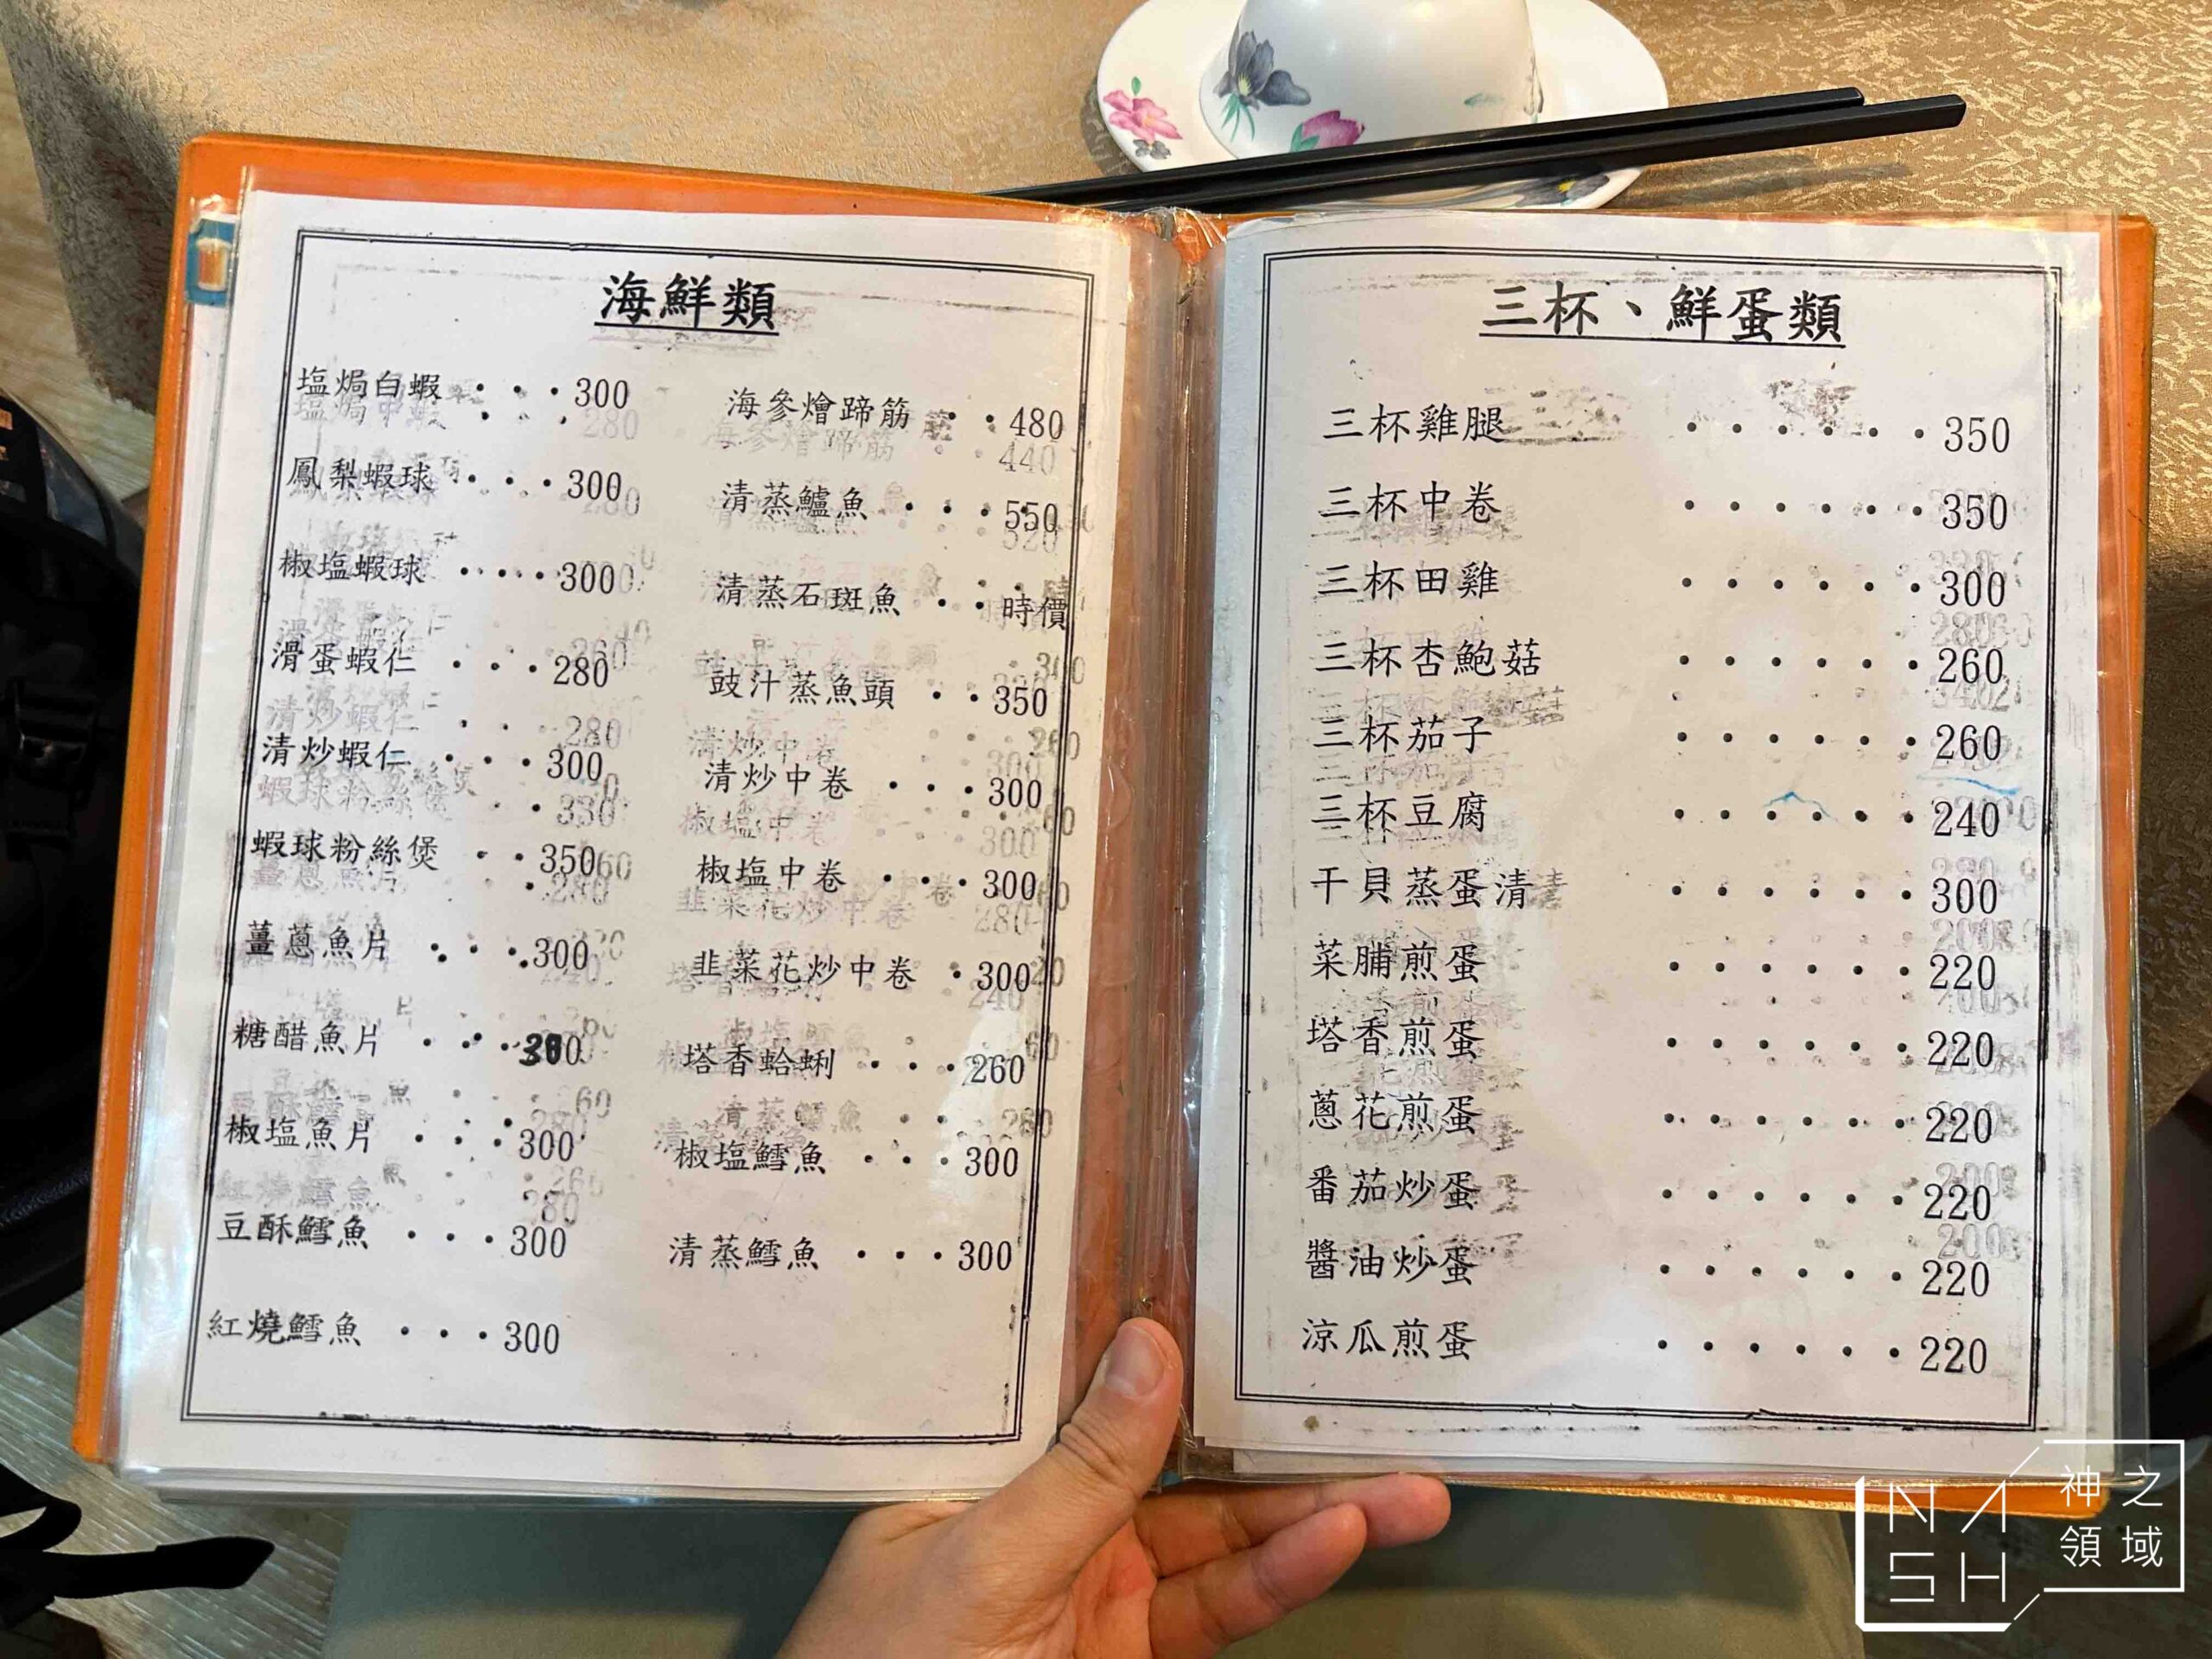 海鮮類
塩焗白蝦 ・・・300
鳳梨蝦球・・・300
椒塩蝦球 ・・・300
滑蛋蝦仁 ・・・280
清炒蝦仁 ・・・300
蝦球粉絲煲 ・・350
薑蔥魚片 ・・・300
糖醋魚片 ・・・300
椒塩魚片 ・・・300
豆酥鱈魚 ・・・300
紅燒鱈魚 ・・・300
海參燴蹄筋 ・・480
清蒸鱸魚 ・・・550
清蒸石斑魚 ・・時價
豉汁蒸魚頭 ・・350
清炒中卷 ・・・300
椒塩中卷 ・・・300
韭菜花炒中卷 ・300
塔香蛤蜊 ・・・260
椒塩鱈魚 ・・・300
清蒸鱈魚 ・・・300
三杯、鮮蛋類
三杯雞腿 ・・・・・・350
三杯中卷 ・・・・・・350
三杯田雞 ・・・・・・300
三杯杏鮑菇 ・・・・・・260
三杯茄子 ・・・・・・260
三杯豆腐 ・・・・・・240
干貝蒸蛋清 ・・・・・・300
菜脯煎蛋 ・・・・・・220
塔香煎蛋 ・・・・・・220
蔥花煎蛋 ・・・・・・220
番茄炒蛋 ・・・・・・220
醬油炒蛋 ・・・・・・220
涼瓜煎蛋 ・・・・・・220
NASH
神之
領域